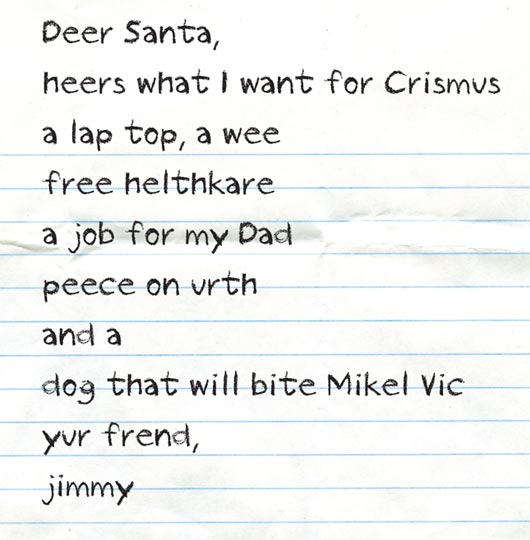 Deer Santa,
heers what I want for Crismus
a lap top, a wee
free helthkare
a job for my Dad
peece on urth
and a
dog that will bite Mikel Vic
yur frend,
jimmy